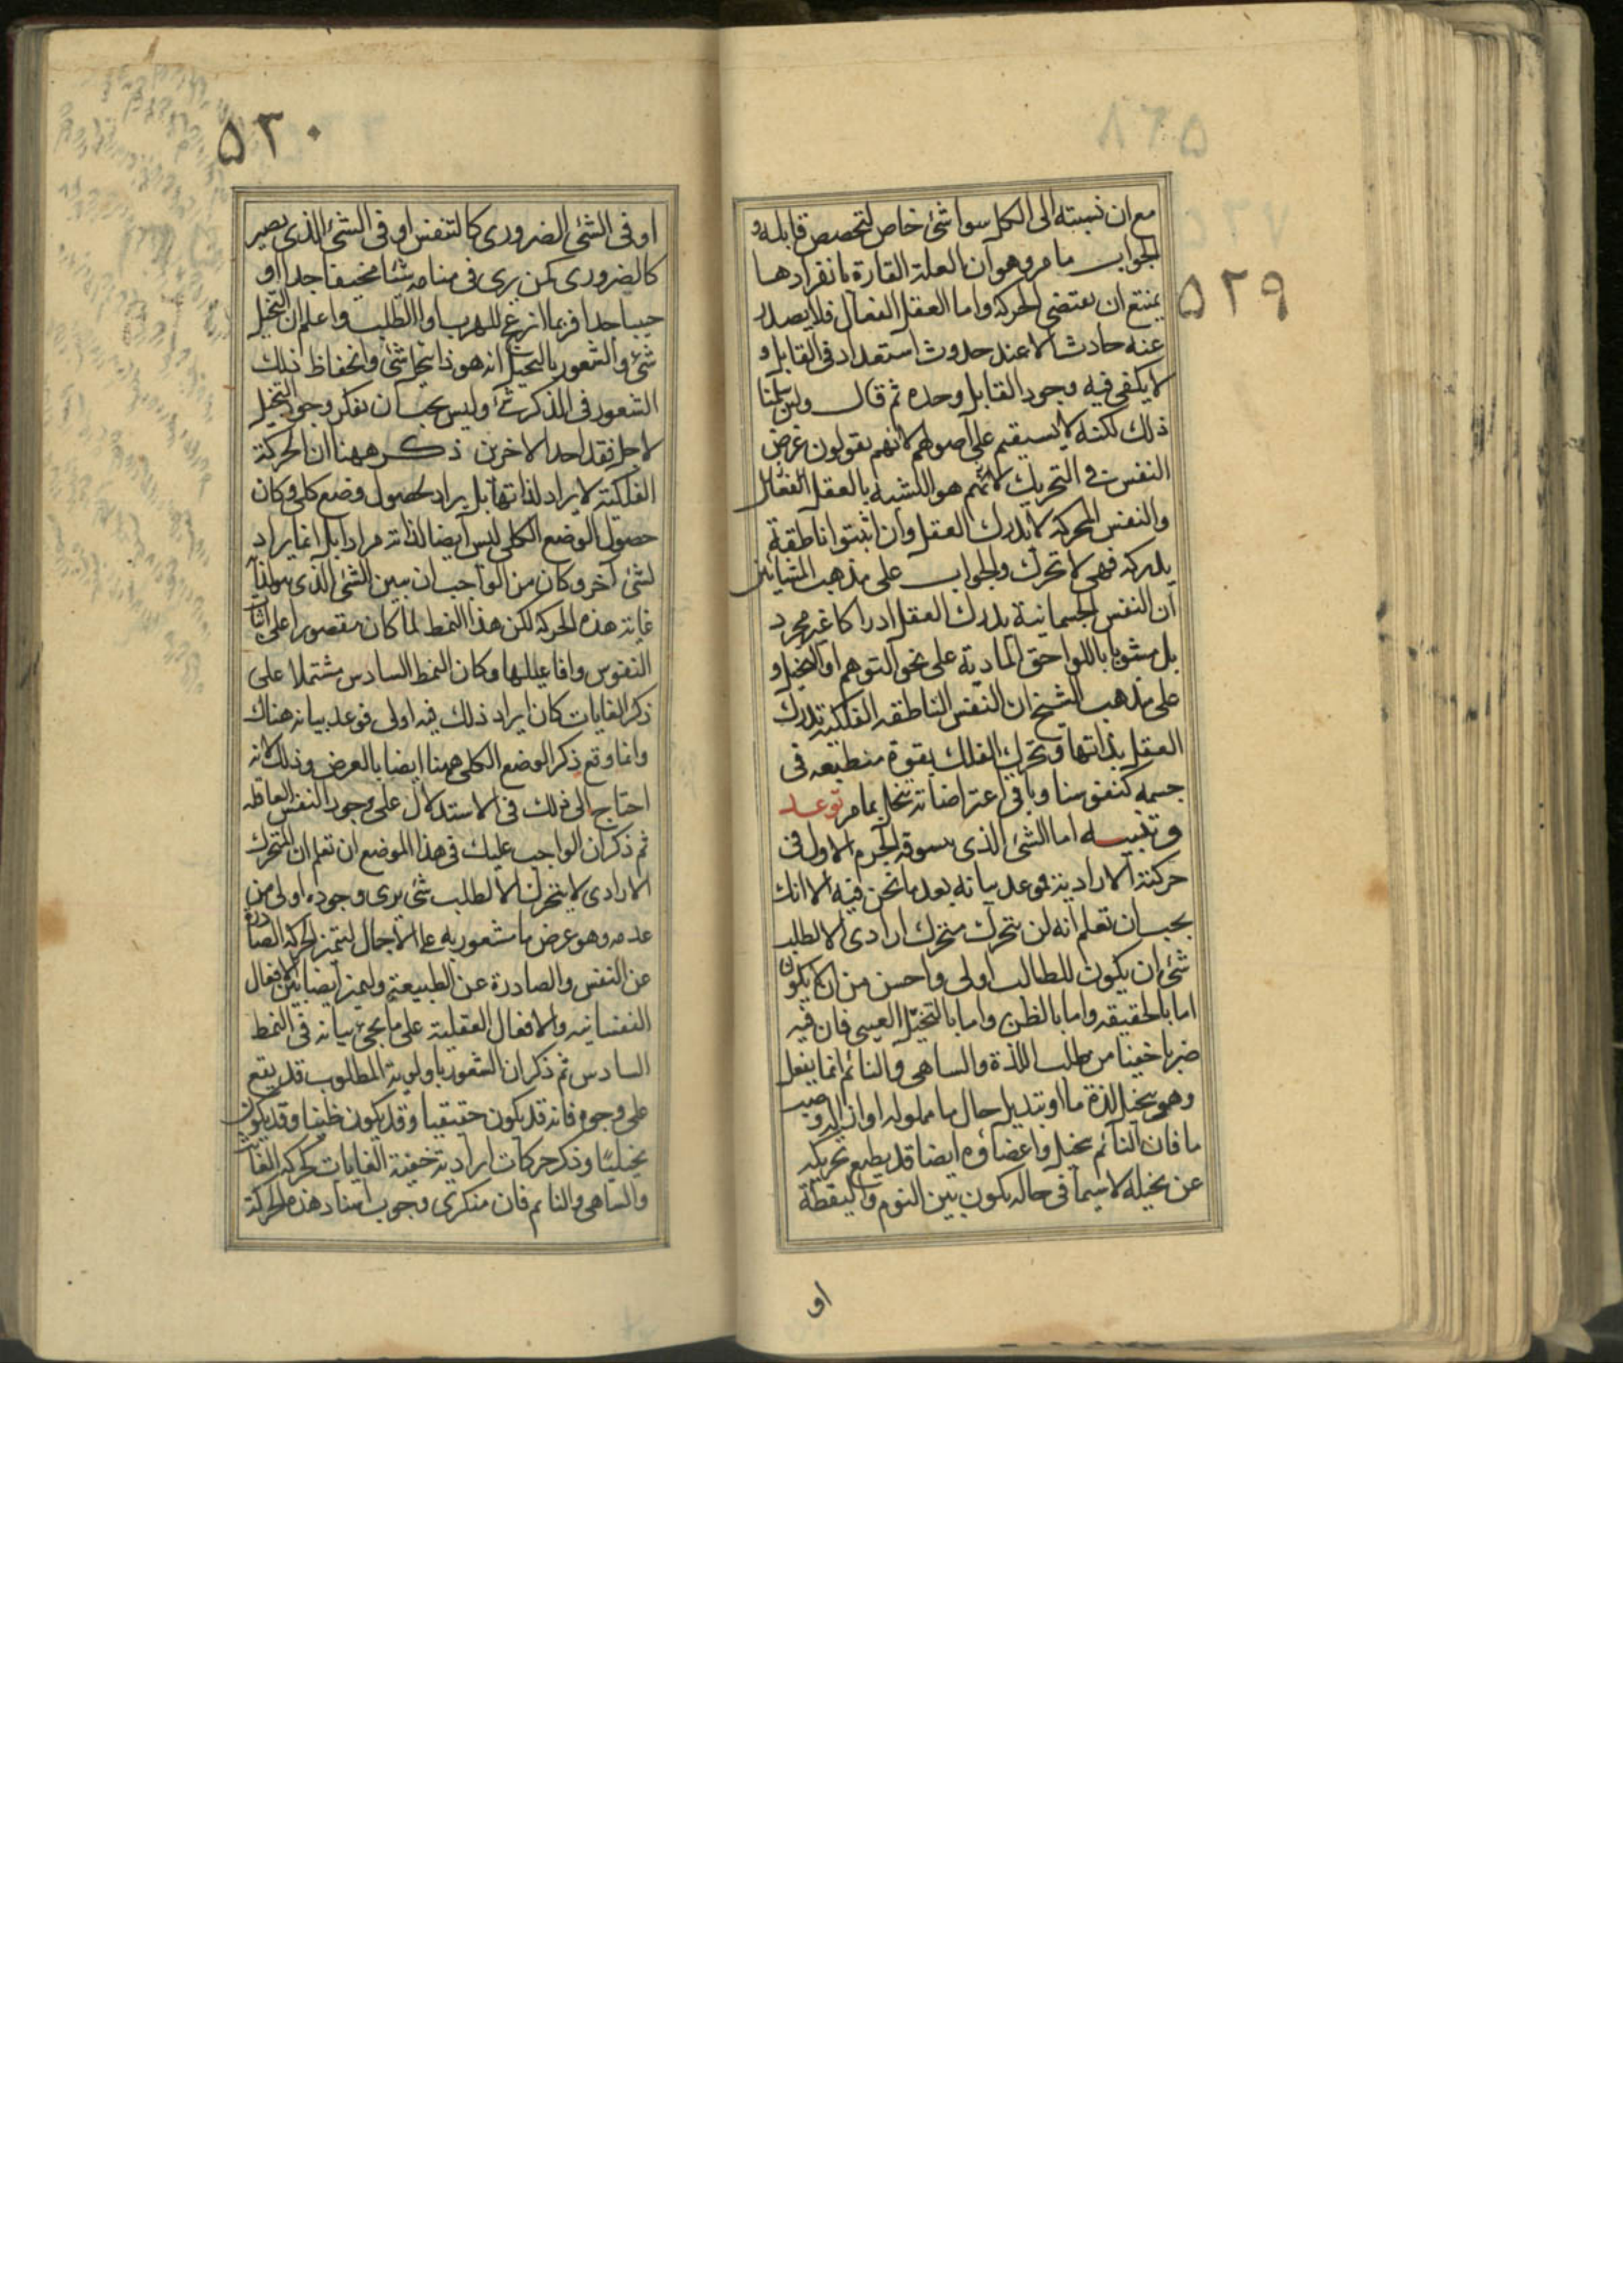 ٥٢٩
مع ان نسبته الى الكل سوا شئ خاص لتخصص قابله و
الجواب ما مر وهو ان العلة القارة بانفرادها
يمتنع ان يقتضى الحركة واما العقل الفعال فلا يصدر
عنه حادث الا عند حدوث استعداد فى القابل و
لا يكفى فيه وجود القابل وحده ثم قال ولئن سلمنا
ذلك لكنه لا يستقيم على اصولهم لانهم يقولون غرض
النفس فى التحريك هو التشبه بالعقل الفعال
والنفس المحركة لا تدرك العقل وان اثبتوا ناطقة
يدركه فهى لا تحرك والجواب على مذهب المشائين
ان النفس الجسمانية يدرك العقل ادراكا غير مجرد
بل مشوبا باللواحق المادية على نحو التوهم او التخيل و
على مذهب الشيخ ان النفس الناطقه الفلكية تدرك
العقل بذاتها وتحرك الفلك بقوة منطبعه فى
جسمه كنفوسنا وباقى اعتراضاته تنحل بما مر توعد
وتنبيه اما الشئ الذى يسوقه الجرم الاول فى
حركته الارادية فموعد بيانه بعد ما نحن فيه الا انك
يجب ان تعلم انه لن يتحرك متحرك ارادى الا لطلب
شئ ان يكون للطالب اولى واحسن من ان لا يكون
اما بالحقيقه واما بالظن واما بالتخيل العبثى فان فيه
ضربا خفيا من طلب اللذة والساهى والنائم انما يفعل
وهو يتخيل لذة ما او تبديل حال ما مملوله او ازاله وصب
ما فان النائم يخيل واعضاؤه ايضا قد يطيع تحريكه
عن تخيله لا سيما فى حاله يكون بين النوم واليقظة
او
٥٣٠
او فى الشئ الضرورى كالتنفس او فى الشئ الذى يصير
كالضرورى كمن يرى فى منامه شيئا مخيفا جدا او
حبيبا جدا فربما انزعج للهرب او الطلب واعلم ان التخيل
شئ والشعور بالتخيل انه هوذا يتخيل شئ وانحفاظ ذلك
الشعور فى الذكر شئ وليس يجب ان ينكر وجود التخيل
لاجل فقد احد الاخرين ذكر ههنا ان الحركة
الفلكية لا يراد لذاتها بل يراد لحصول وضع كلى وكان
حصول الوضع الكلى ليس ايضا لذاته مرادا بل انما يراد
لشئ آخر وكان من الواجب ان يبين الشئ الذى هو لذا
غاية هذه الحركة لكن هذا النمط لما كان مقصورا على اثبا
النفوس وافاعيلها وكان النمط السادس مشتملا على
ذكر الغايات كان ايراد ذلك فيه اولى فوعد بيانه هناك
وانما وقع ذكر الوضع الكلى ههنا ايضا بالعرض وذلك لانه
احتاج الى ذلك فى الاستدلال على وجود النفس العاقله
ثم ذكر ان الواجب عليك فى هذا الموضع ان تعلم ان المتحرك
الارادى لا يتحرك الا لطلب شئ يرى وجوده اولى من
عدمه وهو غرض ما مشعور به على الاجمال لتتميز الحركة الصادرة
عن النفس والصادرة عن الطبيعة وليميز ايضا بين الافعال
النفسانيه والافعال العقلية على ما يجئ بيانه فى النمط
السادس ثم ذكر ان الشعور باولوية المطلوب قد يقع
على وجوه فانه قد يكون حقيقيا وقد يكون ظنيا وقد يكون
تخيليا وذكر حركات ارادية خفية الغايات كحركة العابث
والساهى والنائم فان منكرى وجوب اسناد هذه الحركة